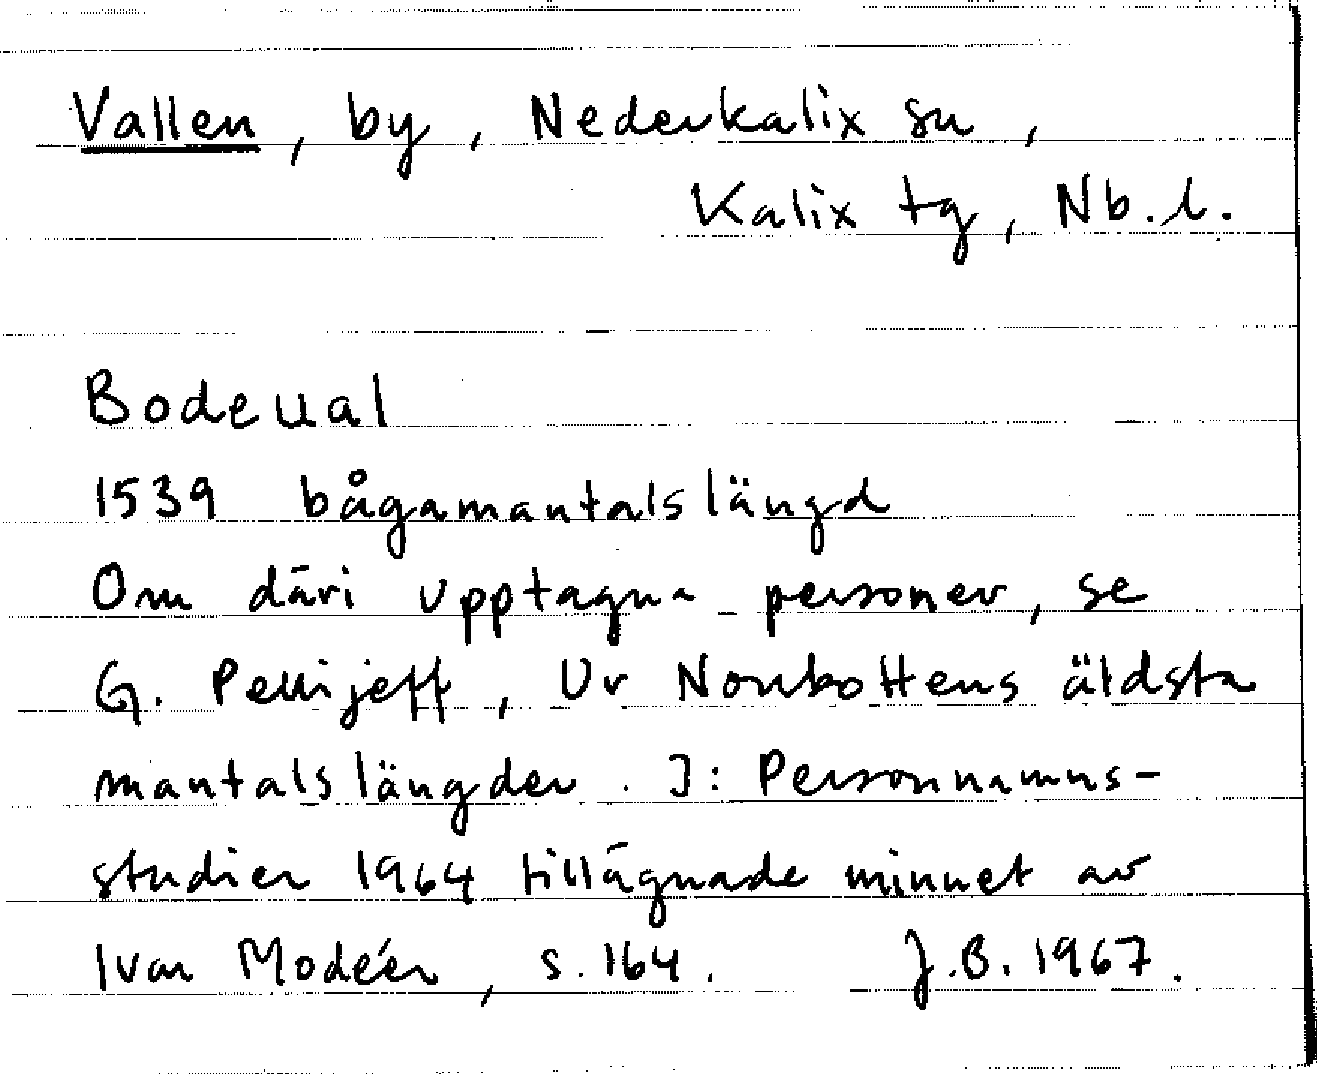 Vallen, by, Nederkalix sn,
Kalix tg, Nb. l.
Bodeual
1539 bågamantalslängd
Om däri upptagna personer, se
G. Pellijeff, Ur Norrbottens äldsta
mantalslängder. I: Personnamns-
studier 1964 tillägnade minnet av
Ivar Modéer, s. 164. J.B. 1967.